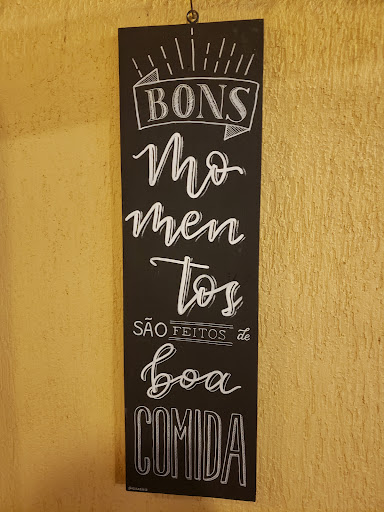 BONS
Mo
men
tos
SÃO FEITOS de
boa
COMIDA